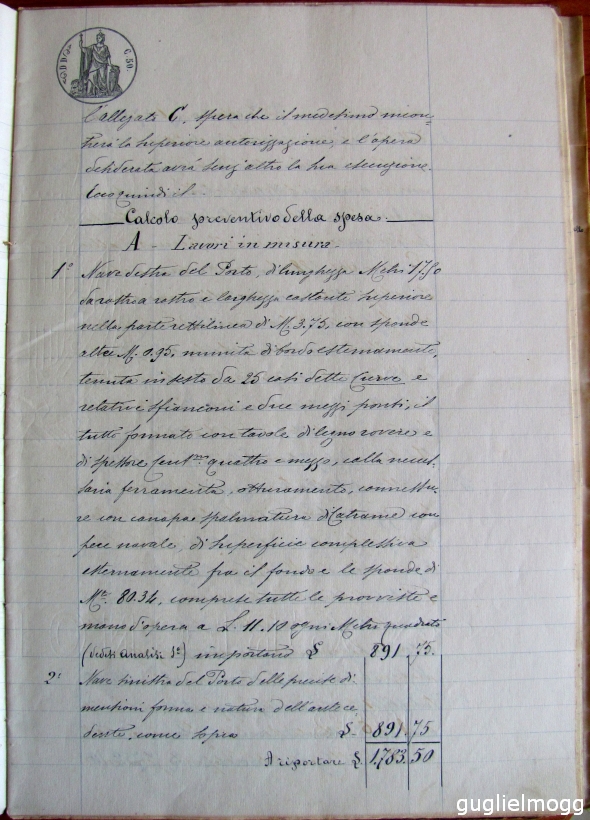 C. 50.
l'allegato C, spera che il medesimo incon=
trerà la superiore autorizzazione, e l'opera
desiderata avrà senz'altro la sua esecuzione.
Ecco quindi il
Calcolo preventivo della spesa.
A - Lavori in misura.
1° Nave destra del Porto, di lunghezza Metri 17.50
da rostro a rostro e larghezza costante superiore
nella parte rettilinea di M. 3.75, con sponde
alte M. 0.95, munita di bordo esternamente,
tenuta in sesto da 25 così dette Curve e
relativi sfianconi e due mezzi ponti, il
tutto formato con tavole di legno rovere e
di spessore Cent.mi quattro e mezzo, colla neces-
saria ferramenta, otturamento, connessu-
re con canapa e spalmatura di Catrame con
pece navale, di superficie complessiva
esternamente fra il fondo e le sponde di
M.i 80.34, comprese tutte le provviste e
mano d'opera a L. 11.10 ogni Metro quadrato
(vedesi Analisi 1°) importano L 891.75.
2° Nave sinistra del Porto delle precise di-
mensioni forma e natura dell'antece
dente, come sopra L. 891.75
A riportare L. 1783.50
guglielmogg